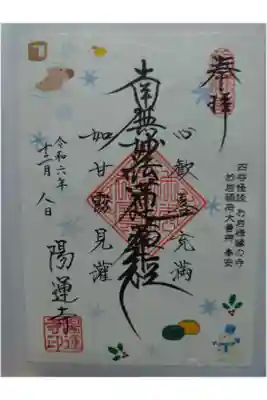 奉拝
四谷怪談 お岩様縁の寺
お岩 大善神 奉安
心歓喜充満
南無妙法蓮華経
如甘露見灌
令和六年
十二月 八日
陽運寺
陽運寺印